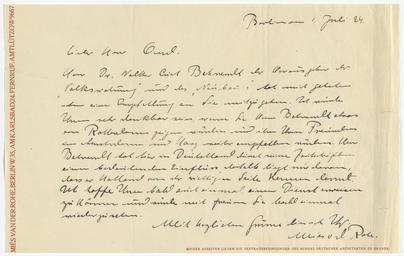 MIES VAN DER ROHE, BERLIN W 35, AM KARLSBAD 24. FERNRUF: AMT LÜTZOW 9667
Berlin am 1. Juli 24.
Lieber Herr Oud.
Herr Dr. Walter Curt Behrendt der Herausgeber der
Volkswohnung und des "Neubau" bat mich gebeten
ihm eine Empfehlung an Sie mitzugeben. Ich würde
Ihnen sehr dankbar sein, wenn Sie Herrn Behrendt etwas
von Rotterdam zeigen würden und ihn Ihren Freunden
in Amsterdam und Haag weiter empfehlen würden. Herr
Behrendt hat hier in Deutschland durch seine Zeitschriften
einen bedeutenden Einfluss, deshalb liegt mir daran,
dass er Holland von der richtigen Seite kennen lernt.
Ich hoffe Ihnen bald auch einmal einen Dienst erweisen
zu können und würde mich freuen Sie bald einmal
wiederzusehen.
Mit herzlichem Gruss bin ich Ihr
Mies v. d. Rohe.